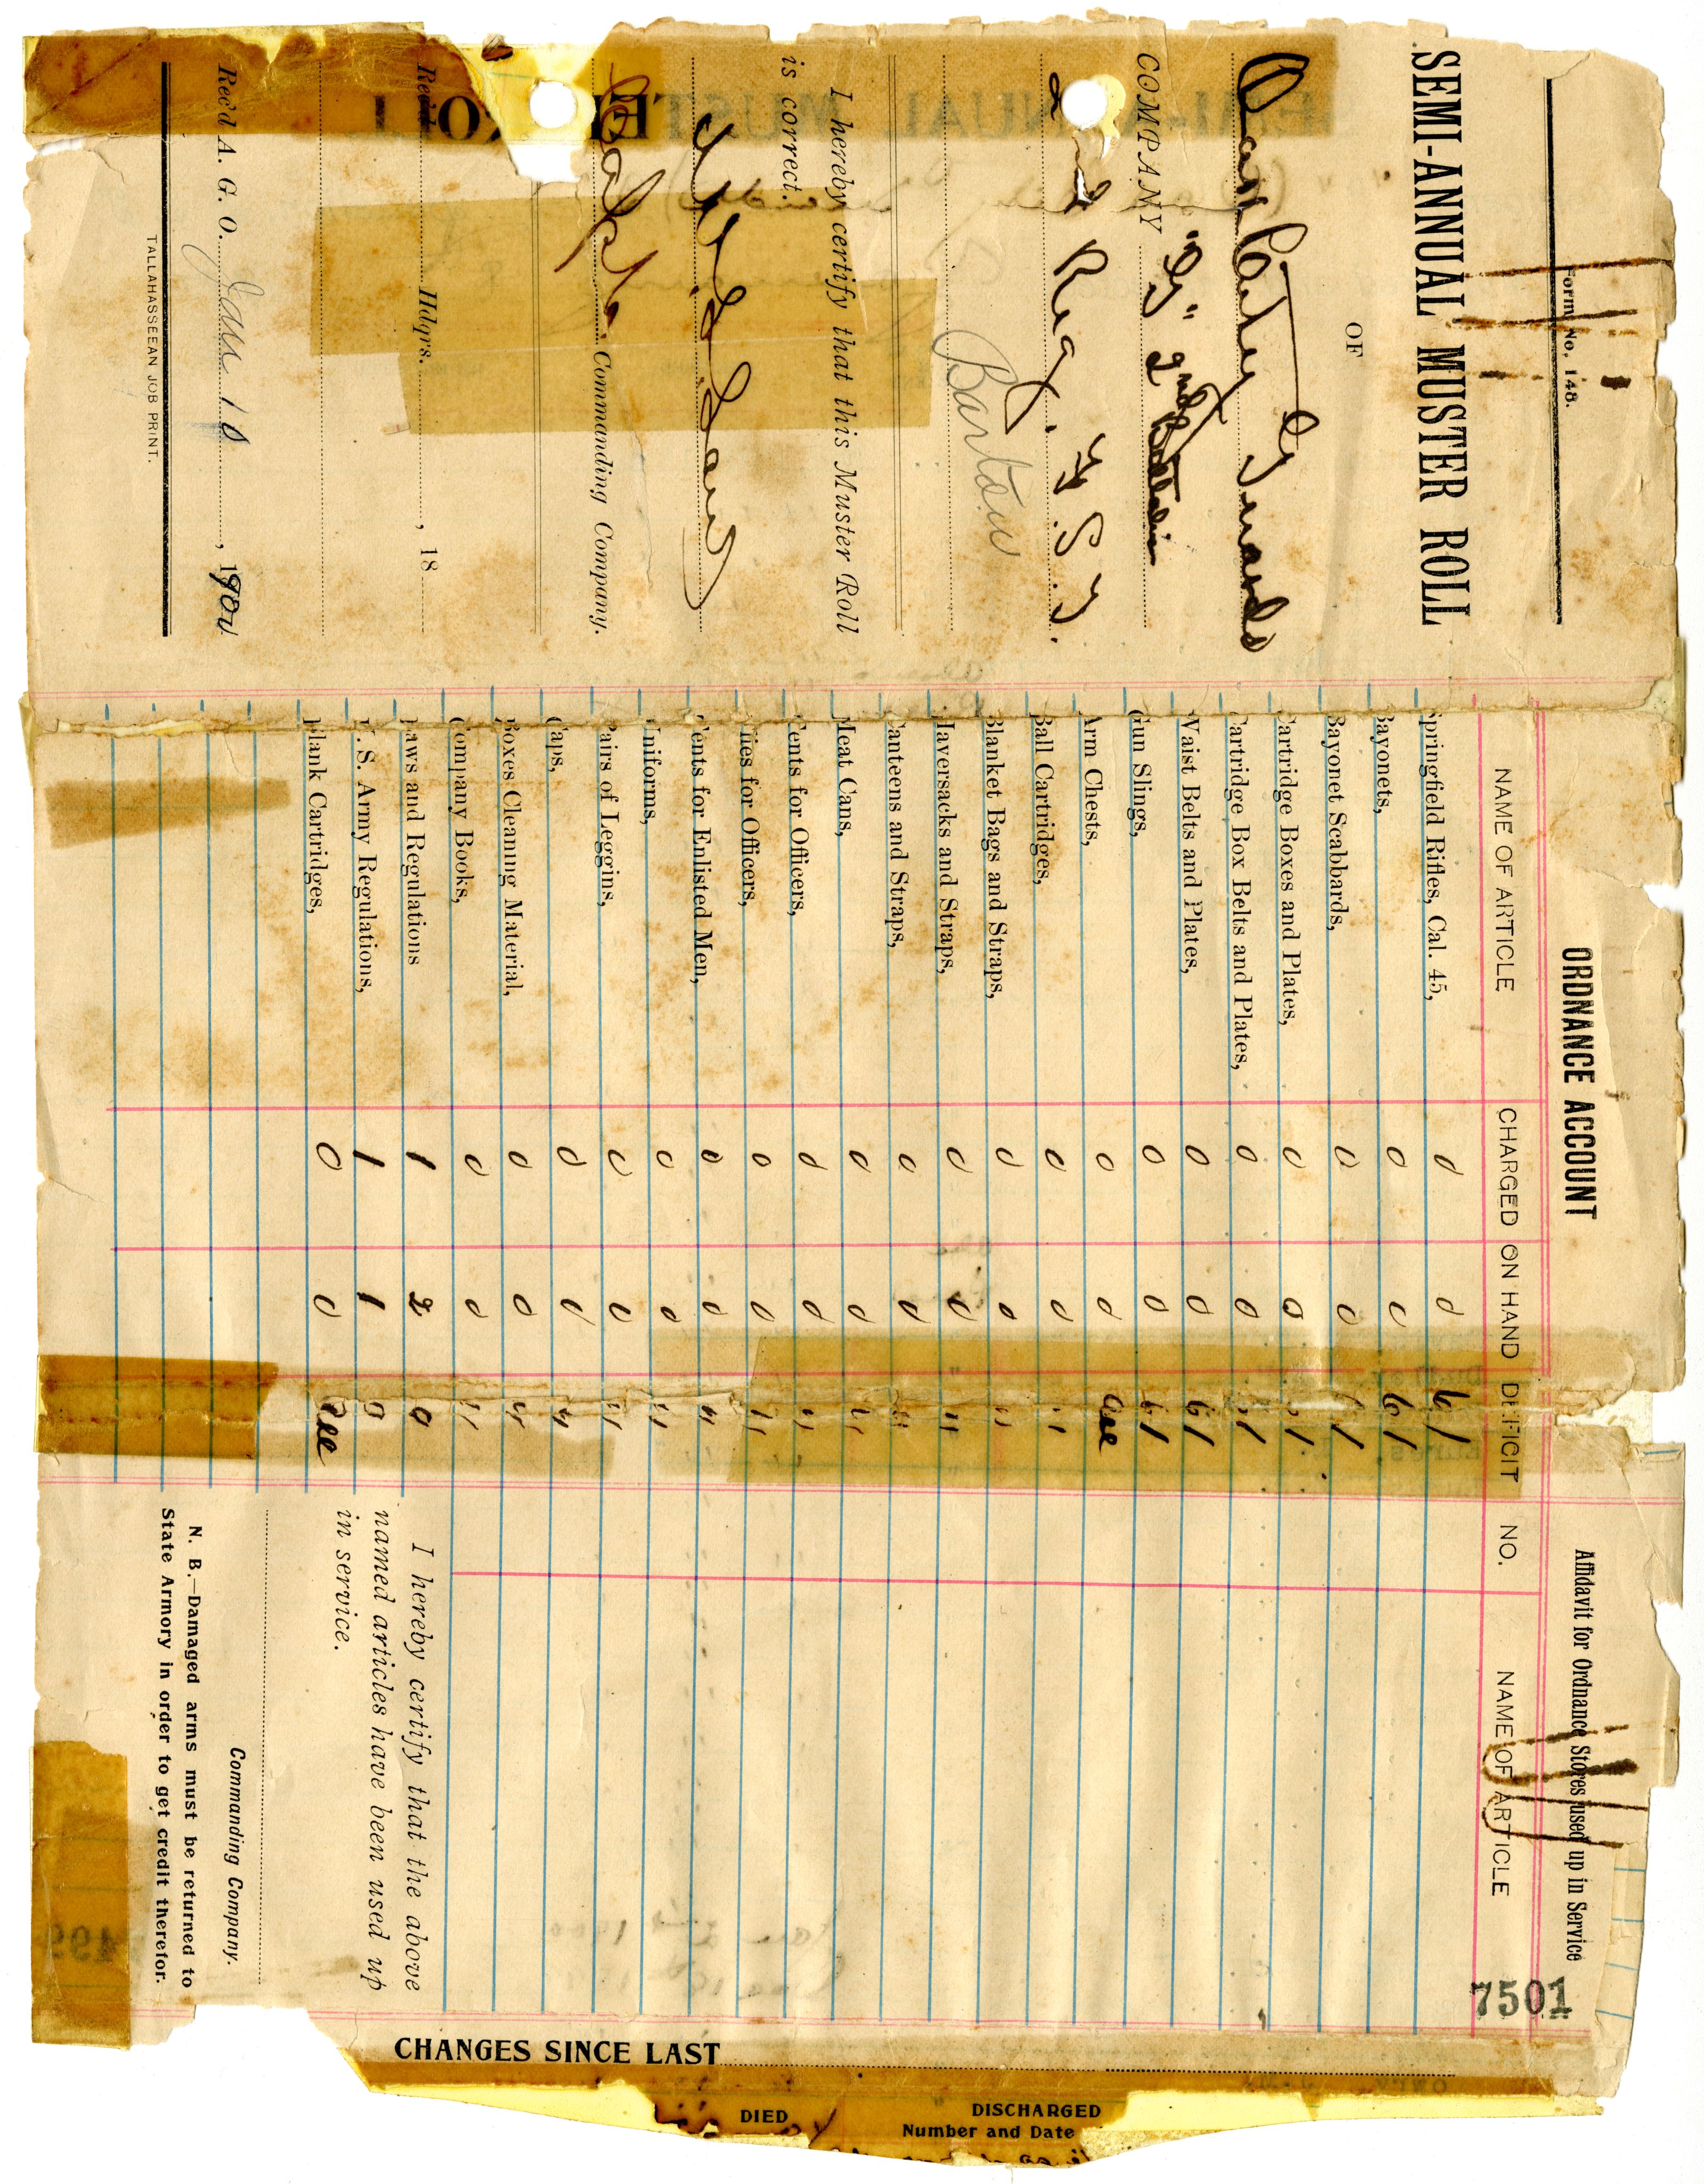 Form No. 148.
SEMI-ANNUAL MUSTER ROLL
OF
Guards
COMPANY "G" 2nd Battalion
2nd Reg. F. S. T.
Bartow
I hereby certify that this Muster Roll
is correct.
Capt. Commanding Company.
Rec'd Hdqrs. , 18
Rec'd A. G. O. Jan 10 , 1900
TALLAHASSEEAN JOB PRINT.
ORDNANCE ACCOUNT
NAME OF ARTICLE CHARGED ON HAND DEFICIT
Springfield Rifles, Cal. 45, 0 0 61
Bayonets, 0 0 61
Bayonet Scabbards, 0 0 61
Cartridge Boxes and Plates, 0 0 61
Cartridge Box Belts and Plates, 0 0 61
Waist Belts and Plates, 0 0 61
Gun Slings, 0 0 61
Arm Chests, 0 0 all
Ball Cartridges, 0 0 "
Blanket Bags and Straps, 0 0 "
Haversacks and Straps, 0 0 "
Canteens and Straps, 0 0 "
Meat Cans, 0 0 "
Tents for Officers, 0 0 "
Flies for Officers, 0 0 "
Tents for Enlisted Men, 0 0 "
Uniforms, 0 0 "
Pairs of Leggins, 0 0 "
Caps, 0 0 "
Boxes Cleaning Material, 0 0 "
Company Books, 0 0 "
Laws and Regulations 1 2 0
U. S. Army Regulations, 1 1 0
Blank Cartridges, 0 0 all
Affidavit for Ordnance Stores used up in Service
NO. NAME OF ARTICLE
7501
I hereby certify that the above
named articles have been used up
in service.
Commanding Company.
N. B.—Damaged arms must be returned to
State Armory in order to get credit therefor.
CHANGES SINCE LAST
DIED
DISCHARGED
Number and Date